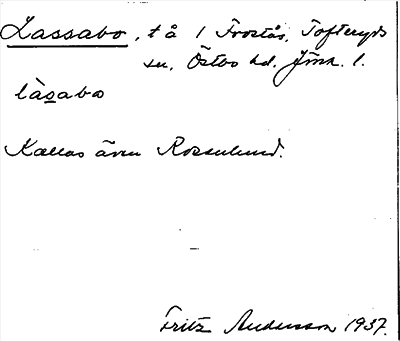 Lassabo, t å 1 Frostås, Tofteryds
sn. Östbo hd. Jönk. l.
làsabo
Kallas även Rosenlund.
Fritz Andersson 1937.